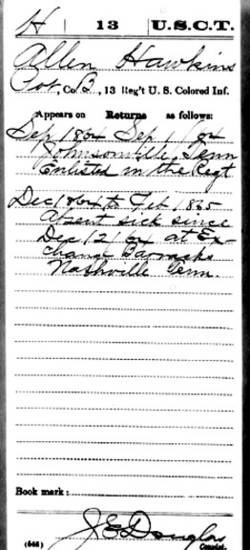 H | 13 | U.S.C.T.
Allen Hawkins
Co. B, 13 Reg't U. S. Colored Inf.
Appears on Returns as follows:
Sep 1864 Sep 1/64
Johnsonville, Tenn
Enlisted in the Regt
Dec 1864 to Feb 1865
Absent sick since
Dec 12/64 at Ex-
change Barracks
Nashville Tenn.
Book mark:
J E Douglas
(546) Copyist.